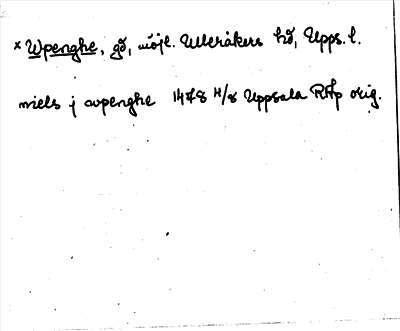 × Wpenghe, gd, möjl. Ulleråkers hd, Upps. l.
niels j wpenghe 1478 4/8 Uppsala RAp orig.